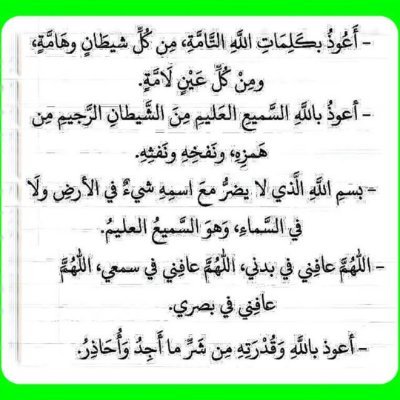 - أَعُوذُ بكَلِمَاتِ اللَّهِ التَّامَّةِ، مِن كُلِّ شيطَانٍ وهَامَّةٍ،
ومِنْ كُلِّ عَيْنٍ لَامَّةٍ.
- أعوذُ باللَّهِ السَّميعِ العَليمِ مِنَ الشَّيطانِ الرَّجيمِ مِن
هَمزِهِ، ونَفخِهِ ونَفثِهِ.
- بِسمِ اللَّهِ الَّذي لا يضرُّ معَ اسمِهِ شيءٌ في الأرضِ ولَا
في السَّماءِ، وَهوَ السَّميعُ العليمُ.
- اللَّهُمَّ عافِني في بدَني، اللَّهُمَّ عافِني في سمعي، اللَّهُمَّ
عافِني في بصَري.
- أعوذ باللَّهِ وَقُدْرَتِهِ مِن شَرِّ ما أَجِدُ وَأُحَاذِرُ.